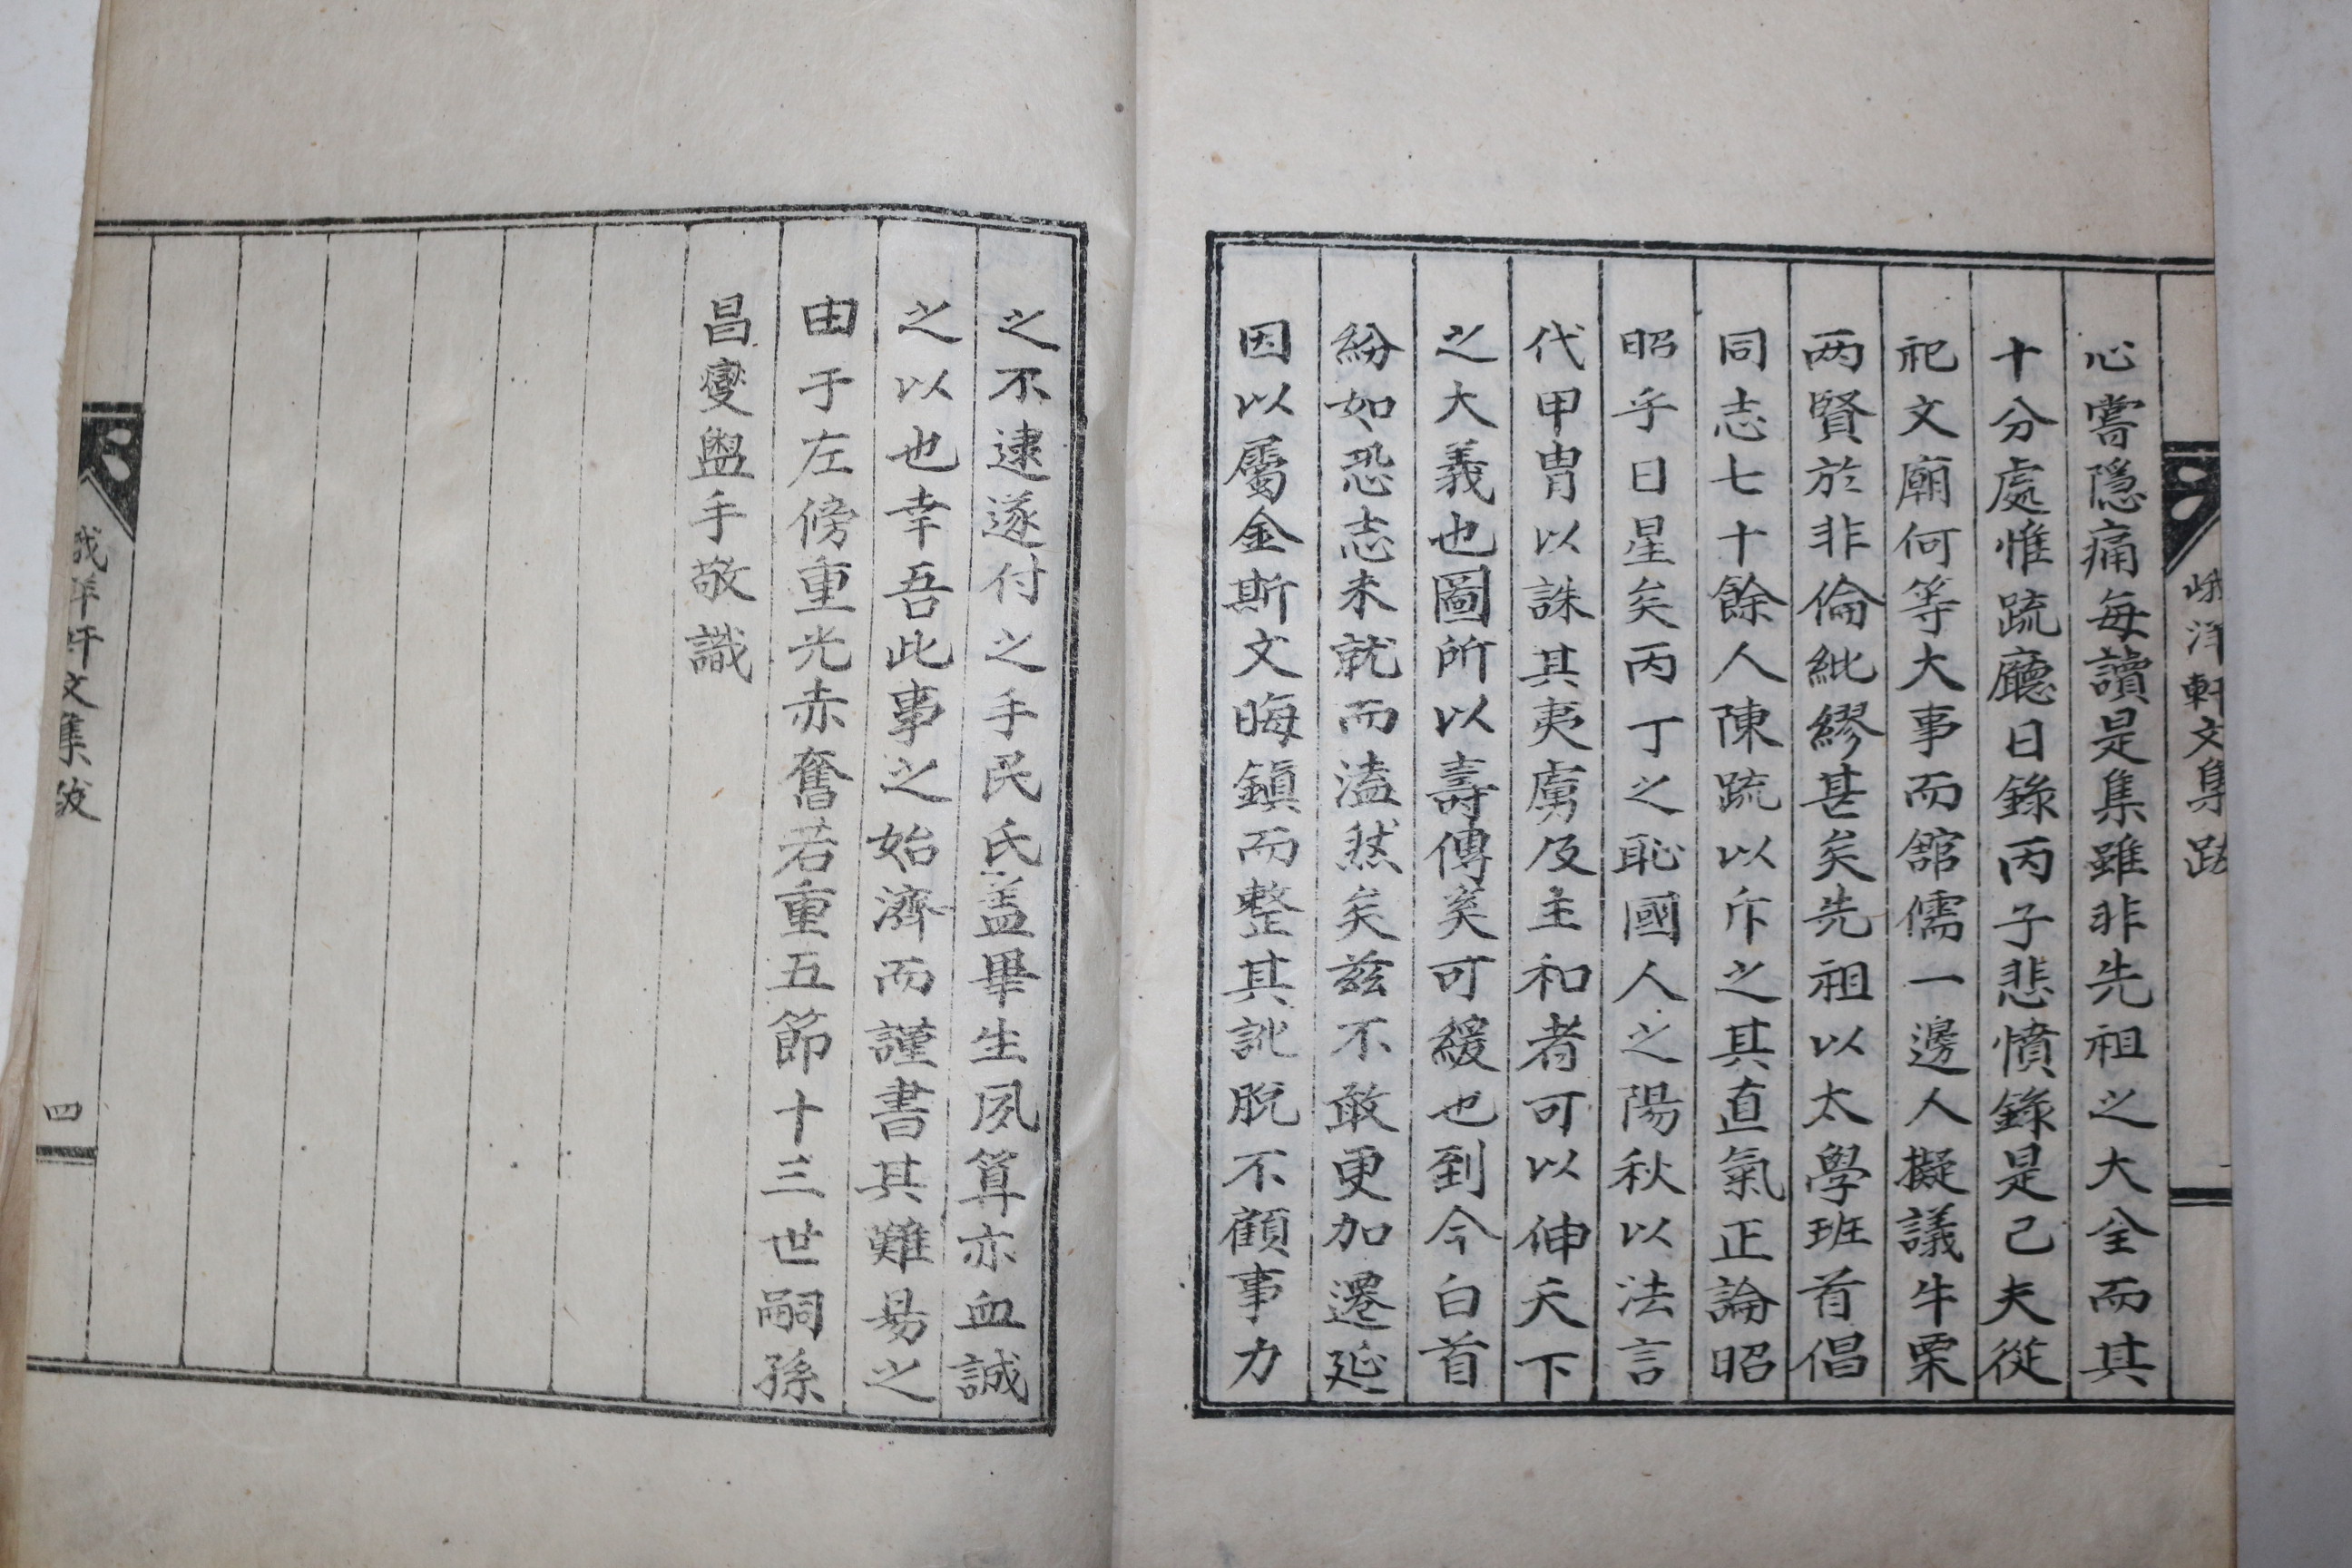 峨洋軒文集跋
心嘗隱痛每讀是集雖非先祖之大全而其
十分處惟疏廳日錄丙子悲憤錄是已夫從
祀文廟何等大事而舘儒一邊人擬議牛栗
两賢於非倫紕繆甚矣先祖以太學班首倡
同志七十餘人陳疏以斥之其直氣正論昭
昭乎日星矣丙丁之恥國人之陽秋以法言
代甲胄以誅其夷虜及主和者可以伸天下
之大義也圖所以壽傳奚可緩也到今白首
紛如恐志未就而溘然矣玆不敢更加遷延
因以屬金斯文晦鎭而整其訛脫不顧事力
之不逮遂付之手民氏盖畢生夙算亦血誠
之以也幸吾此事之始濟而謹書其難昜之
由于左傍重光赤奮若重五節十三世嗣孫
昌燮盥手敬識
峨洋軒文集跋
四